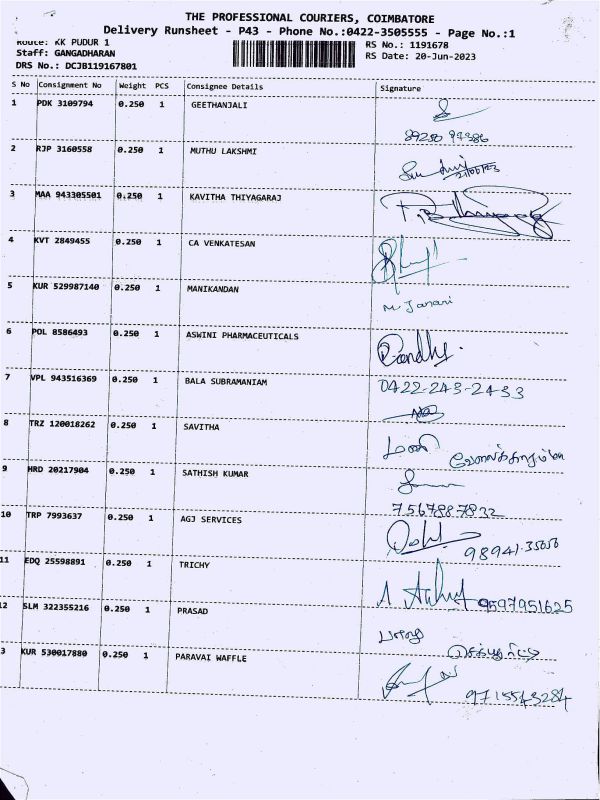 THE PROFESSIONAL COURIERS, COIMBATORE
Delivery Runsheet - P43 - Phone No.:0422-3505555 - Page No.:1
Route: KK PUDUR 1
RS No.: 1191678
Staff: GANGADHARAN
RS Date: 20-Jun-2023
DRS No.: DCJB119167801
S No Consignment No Weight PCS Consignee Details Signature
1 PDK 3109794 0.250 1 GEETHANJALI
2 RJP 3160558 0.250 1 MUTHU LAKSHMI
3 MAA 943305501 0.250 1 KAVITHA THIYAGARAJ
4 KVT 2849455 0.250 1 CA VENKATESAN
5 KUR 529987140 0.250 1 MANIKANDAN
M. Janani
6 POL 8586493 0.250 1 ASWINI PHARMACEUTICALS
7 VPL 943516369 0.250 1 BALA SUBRAMANIAM 0422-243-2433
8 TRZ 120018262 0.250 1 SAVITHA
மணி
9 HRD 20217904 0.250 1 SATHISH KUMAR
7567887832
10 TRP 7993637 0.250 1 AGJ SERVICES
98941-35050
11 EDQ 25598891 0.250 1 TRICHY
9597951625
12 SLM 322355216 0.250 1 PRASAD
3 KUR 530017880 0.250 1 PARAVAI WAFFLE
9715543284